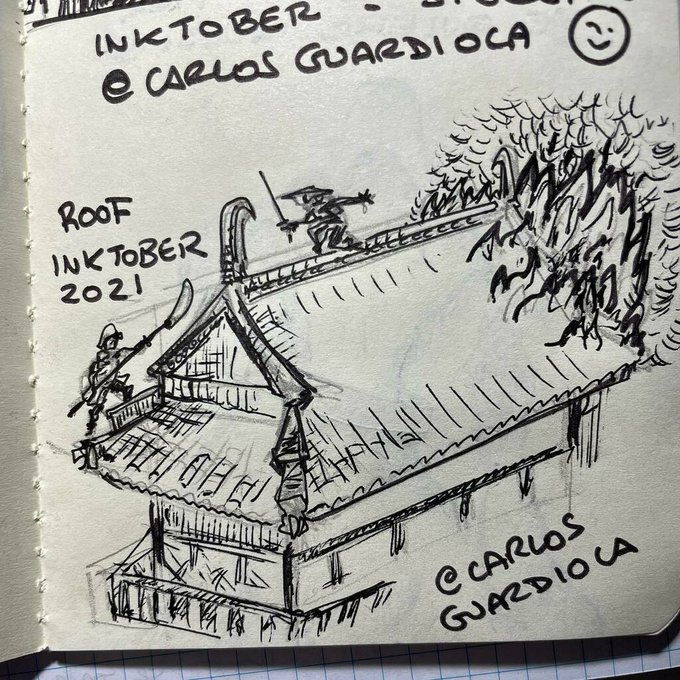 INKTOBER -
@CARLOS GUARDIOLA
ROOF
INKTOBER
2021
@CARLOS
GUARDIOLA